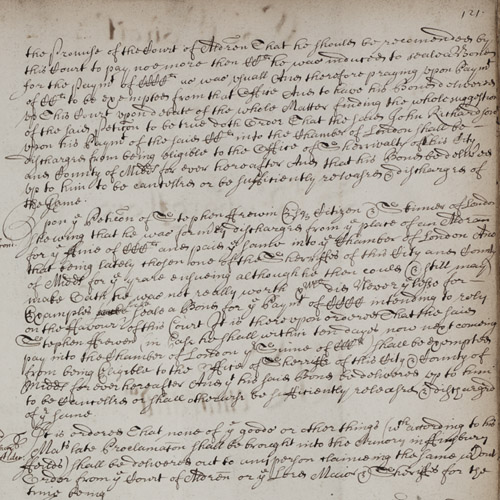 121
the promise of the Court of Aldren That he should be recomended by
this Court to pay noe more then he was induced to seale a Bond
for the paymt of as was usuall And therefore praying upon paymt
of to be exempted from that Office And to have his Bond delivered
up This Court upon debate of the whole Matter finding the whole suggestion
of the said Petition to be true doth Order That the said John Richardson
upon his paymt of the said into the Chamber of London shall be
discharged from being eligible to the Office of Shrivalty of this City
and County of Middx for ever hereafter And that his Bond be delivered
up to him to be cancelled or be sufficiently released & discharged of
the same.
Upon ye Petition of Stephen Citizen & of London
shewing that he was formerly discharged from ye place of an Aldran
for ye ffine of and paid ye same into ye Chamber of London And
that being lately chosen one of the Sherriffes of this City and County
of Middx for ye yeare ensueing although he then could & still may
make Oath he was not really worth did Nevertheless for
Example seale a Bond for ye paymt of intending to rely
on the ffavour of this Court It is thereupon ordered That the said
Stephen in case he shall within ten dayes now next comeing
pay into the Chamber of London ye ffine of shall be exempted
from being Eligible to the Office of Sherriffe of this City & County of
Middx for ever hereafter And ye his said Bond be delivered up to him
to be Cancelled or shall otherwise be sufficiently released & discharged
of ye same
It is ordered That none of ye goods or other things (wch according to his
Mats late Proclamation shall be brought into the Armory in Finsbury
ffeilds) shall be delivered out to any person claimeing the same without
Order from ye Court of Aldren or ye Lord Maior & Sherriffs for the
time being